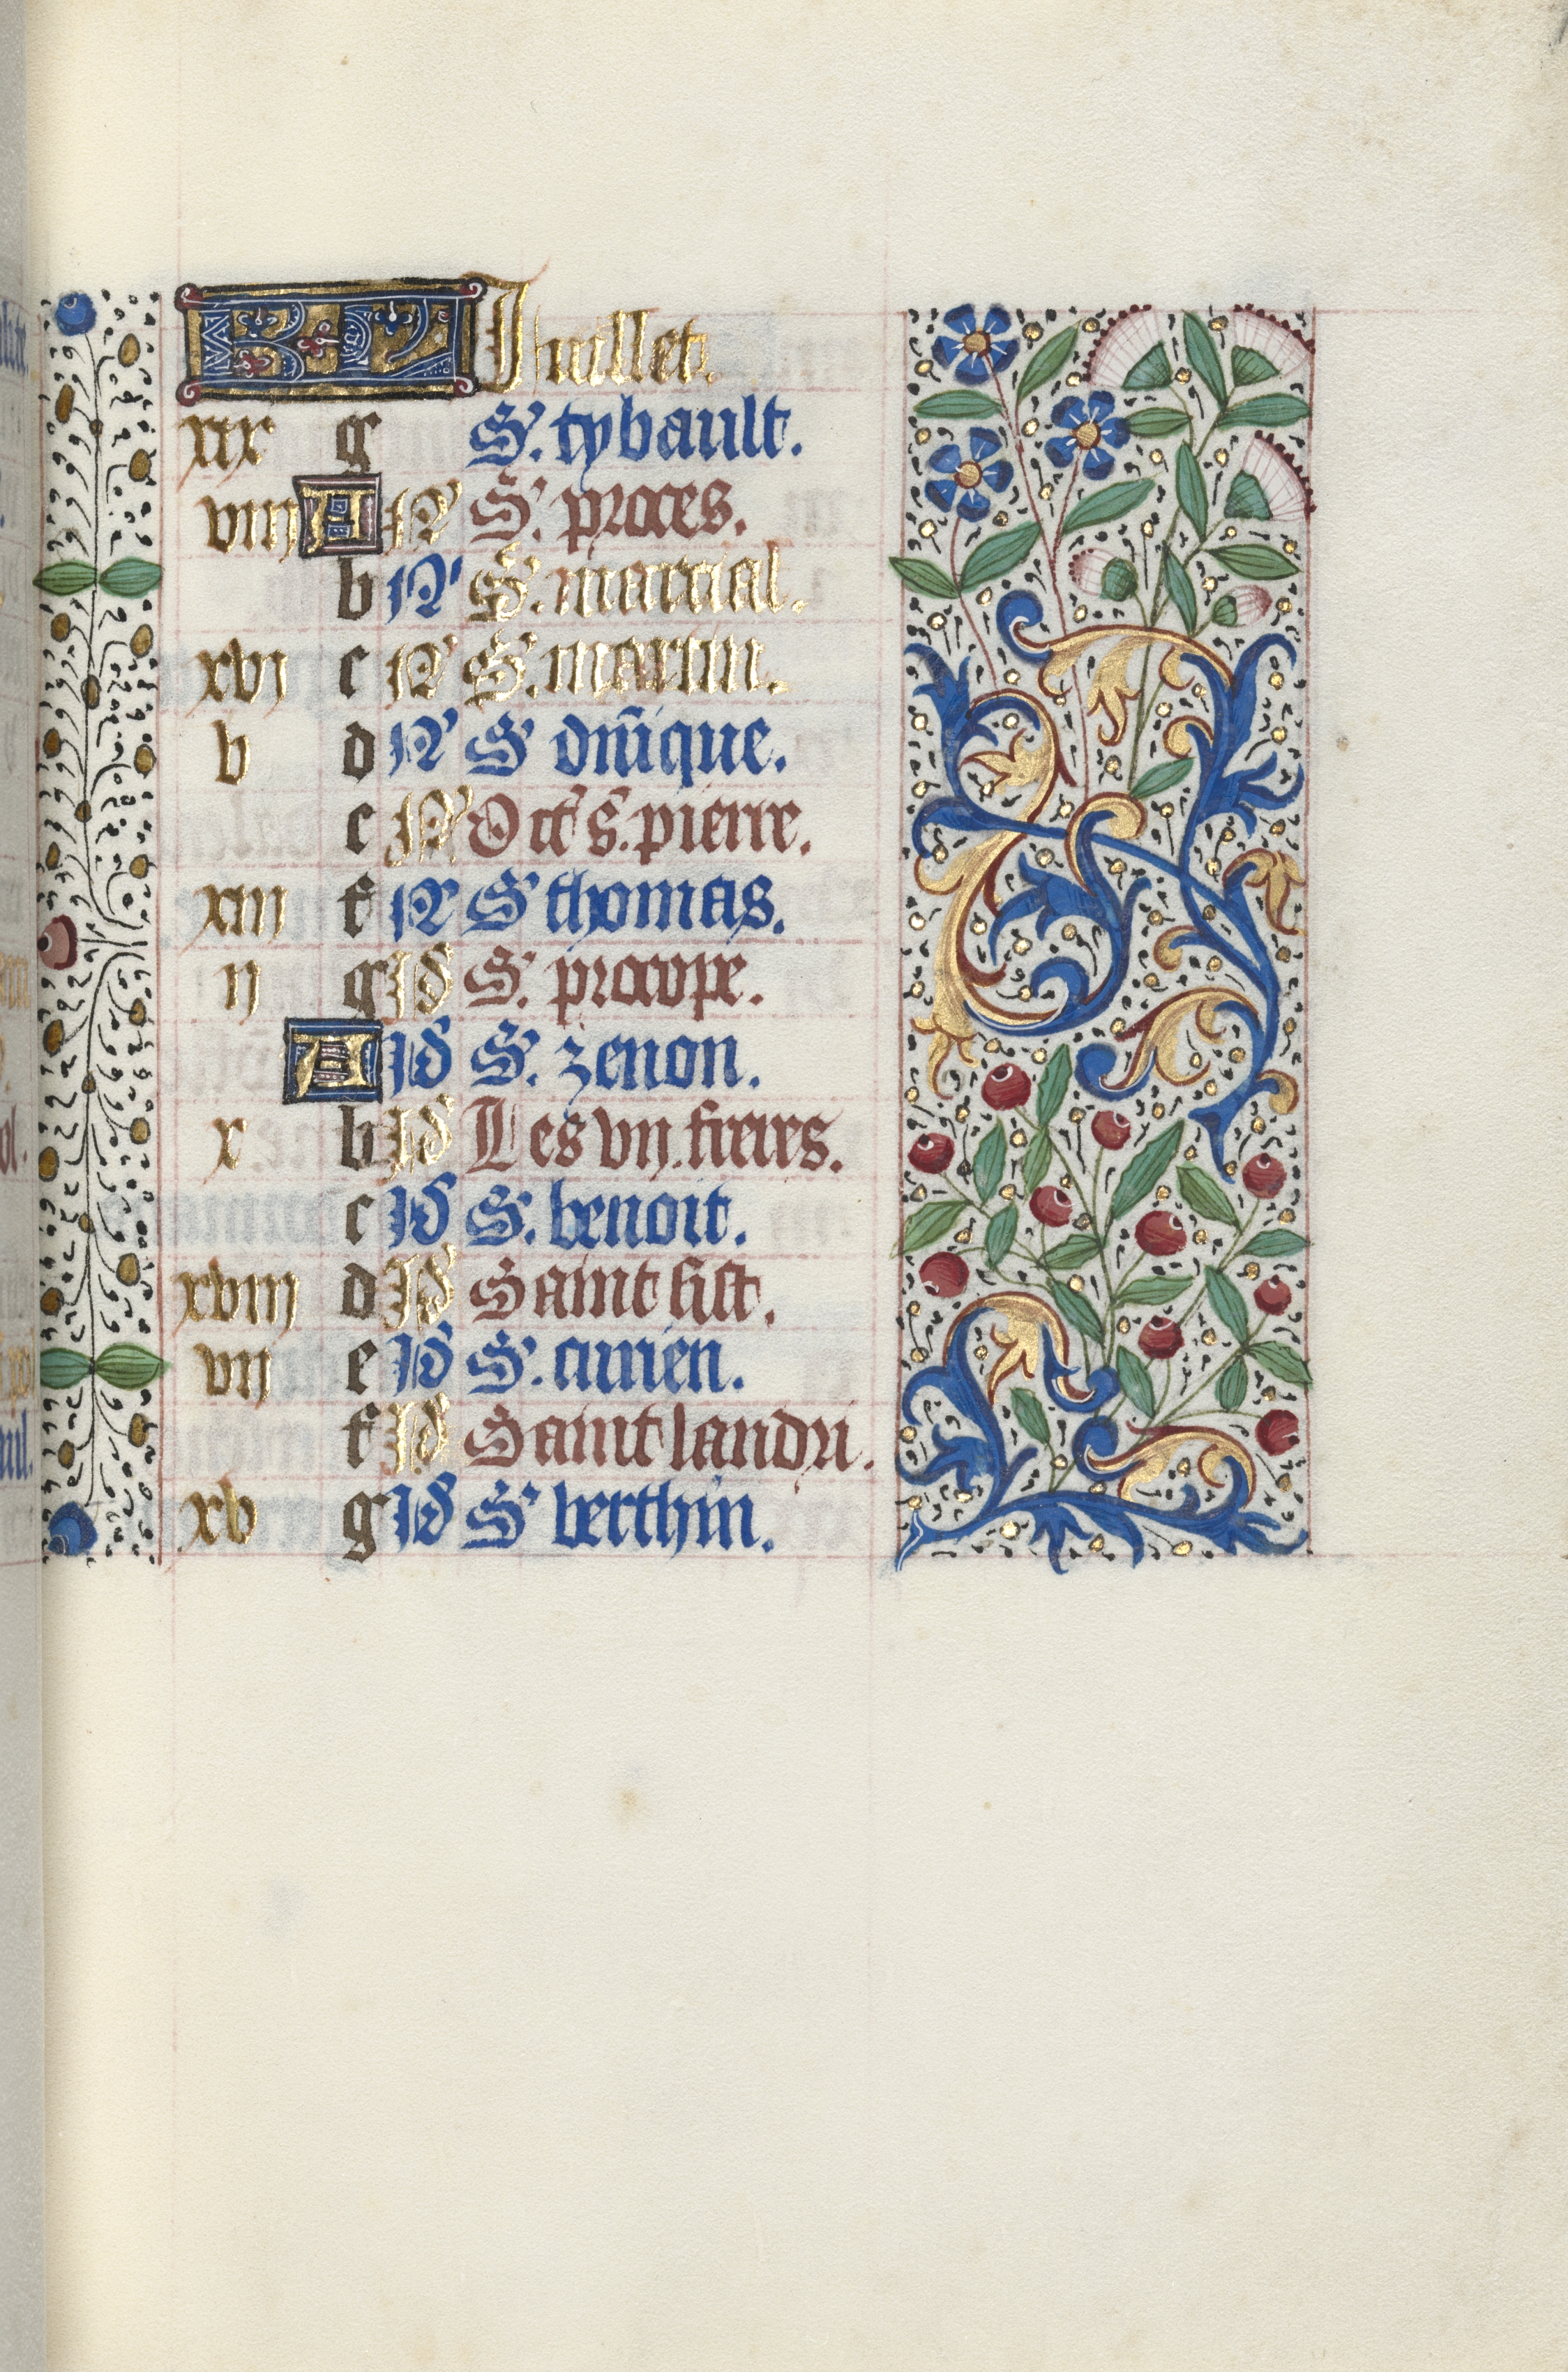 KL Juillet.
xix g S. tybault.
viii A N S. proces.
b N S. marcial.
xvi c N S. martin.
v d N S dn̄ique.
e N Oct s. pierre.
xiii f N S thomas.
ii g id S. procope.
A id S. zenon.
x b id Les vii. freres.
c id S. benoit.
xviii d id Saint sist.
vii e id S. turien.
f id Saint landri.
xv g id S berthin.